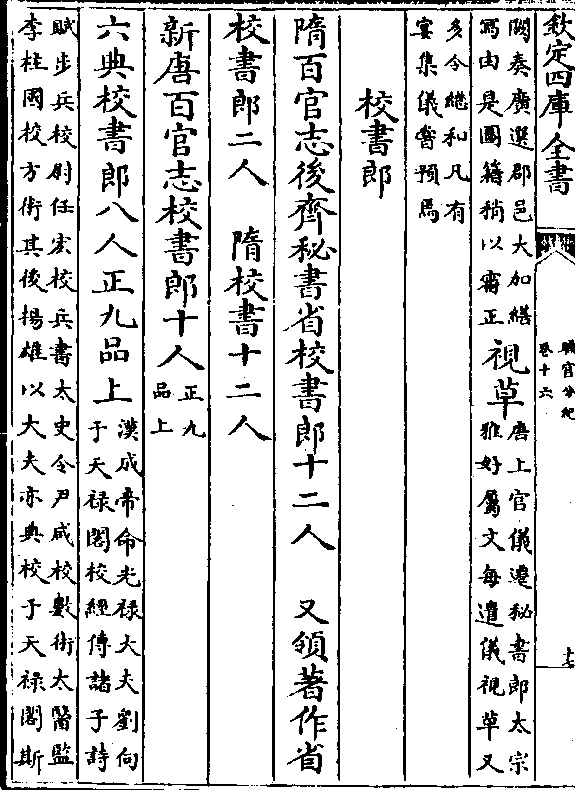 欽定四庫全書
職官分紀
卷十六
十二
闕奏廣選郡邑大加繕
寫由是圖籍稍以審正
視草
唐上官儀遷秘書郎太宗
雅好屬文每遣儀視草又
多令繼和凡有
宴集儀嘗預焉
校書郎
隋百官志後齊秘書省校書郎十二人 又領著作省
校書郎二人 隋校書十二人
新唐百官志校書郎十人
正九
品上
六典校書郎八人正九品上
漢成帝命光禄大夫劉向
于天禄閣校經傳諸子詩
賦步兵校尉任宏校兵書太史令尹咸校數術太醫監
李柱國校方術其後揚雄以大夫亦典校于天禄閣斯